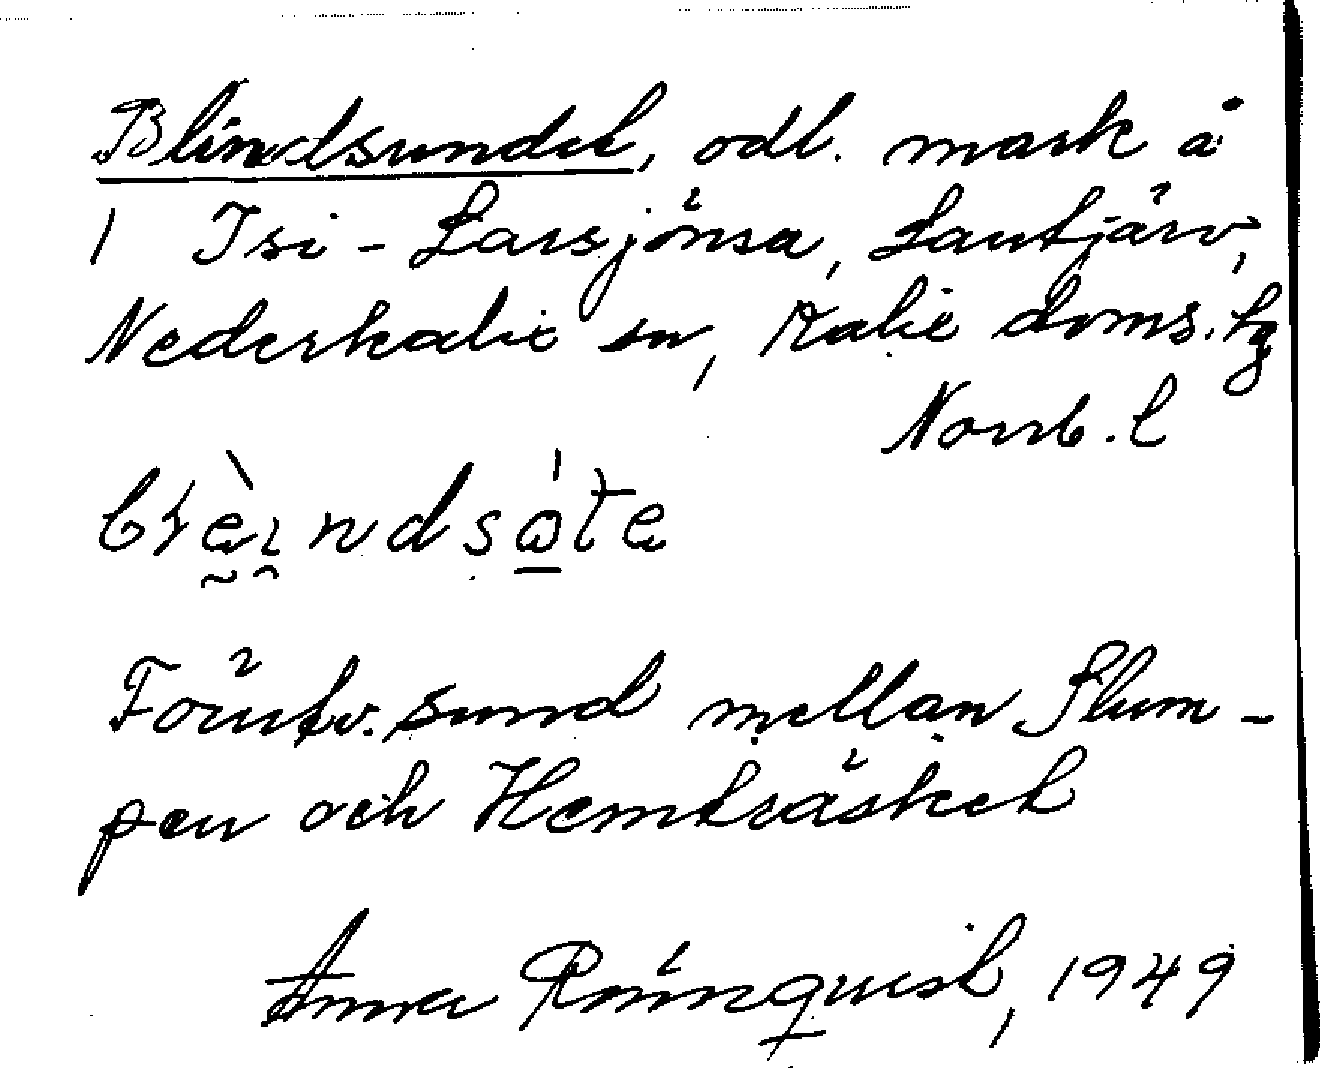 Blindsundet, odl. mark å
1 Isi-Larsjönsa, Lantjärv,
Nederkalix sn, Kalix doms. tg
Norrb. l
Förutv. sund mellan Slum-
pen och Hemträsket
Anna Rönnquist, 1949